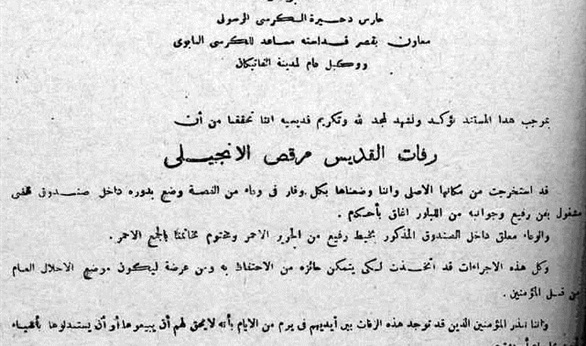 حارس ذخيرة الكرسى الرسولى
معاون بقصر قداسته مساعد للكرسى البابوى
ووكيل عام لمدينة الفاتيكان
بموجب هذا المستند نؤكد ونشهد لمجد لله وتكريم قديسيه اننا تحققنا من أن
رفات القديس مرقص الانجيلى
قد استخرجت من مكانها الاصلى واننا وضعناها بكل وقار فى وعاء من الفضة وضع بدوره داخل صندوق فضى
مشغول بفن رفيع وجوانبه من البللور اغلق بأحكام .
والوعاء معلق داخل الصندوق المذكور بخيط رفيع من الحرير الاحمر ومختوم بخاتمنا بالجمع الاحمر .
وكل هذه الاجراءات قد اتخذت لكى يتمكن حائزه من الاحتفاظ به ومن عرضة ليكون موضع الاجلال العام
من قبل المؤمنين .
واننا نذر المؤمنين الذين قد توجد هذه الرفات بين أيديهم فى يوم من الايام بأنه لا يحق لهم أن يبيعوها أو أن يستبدلوها بأشياء